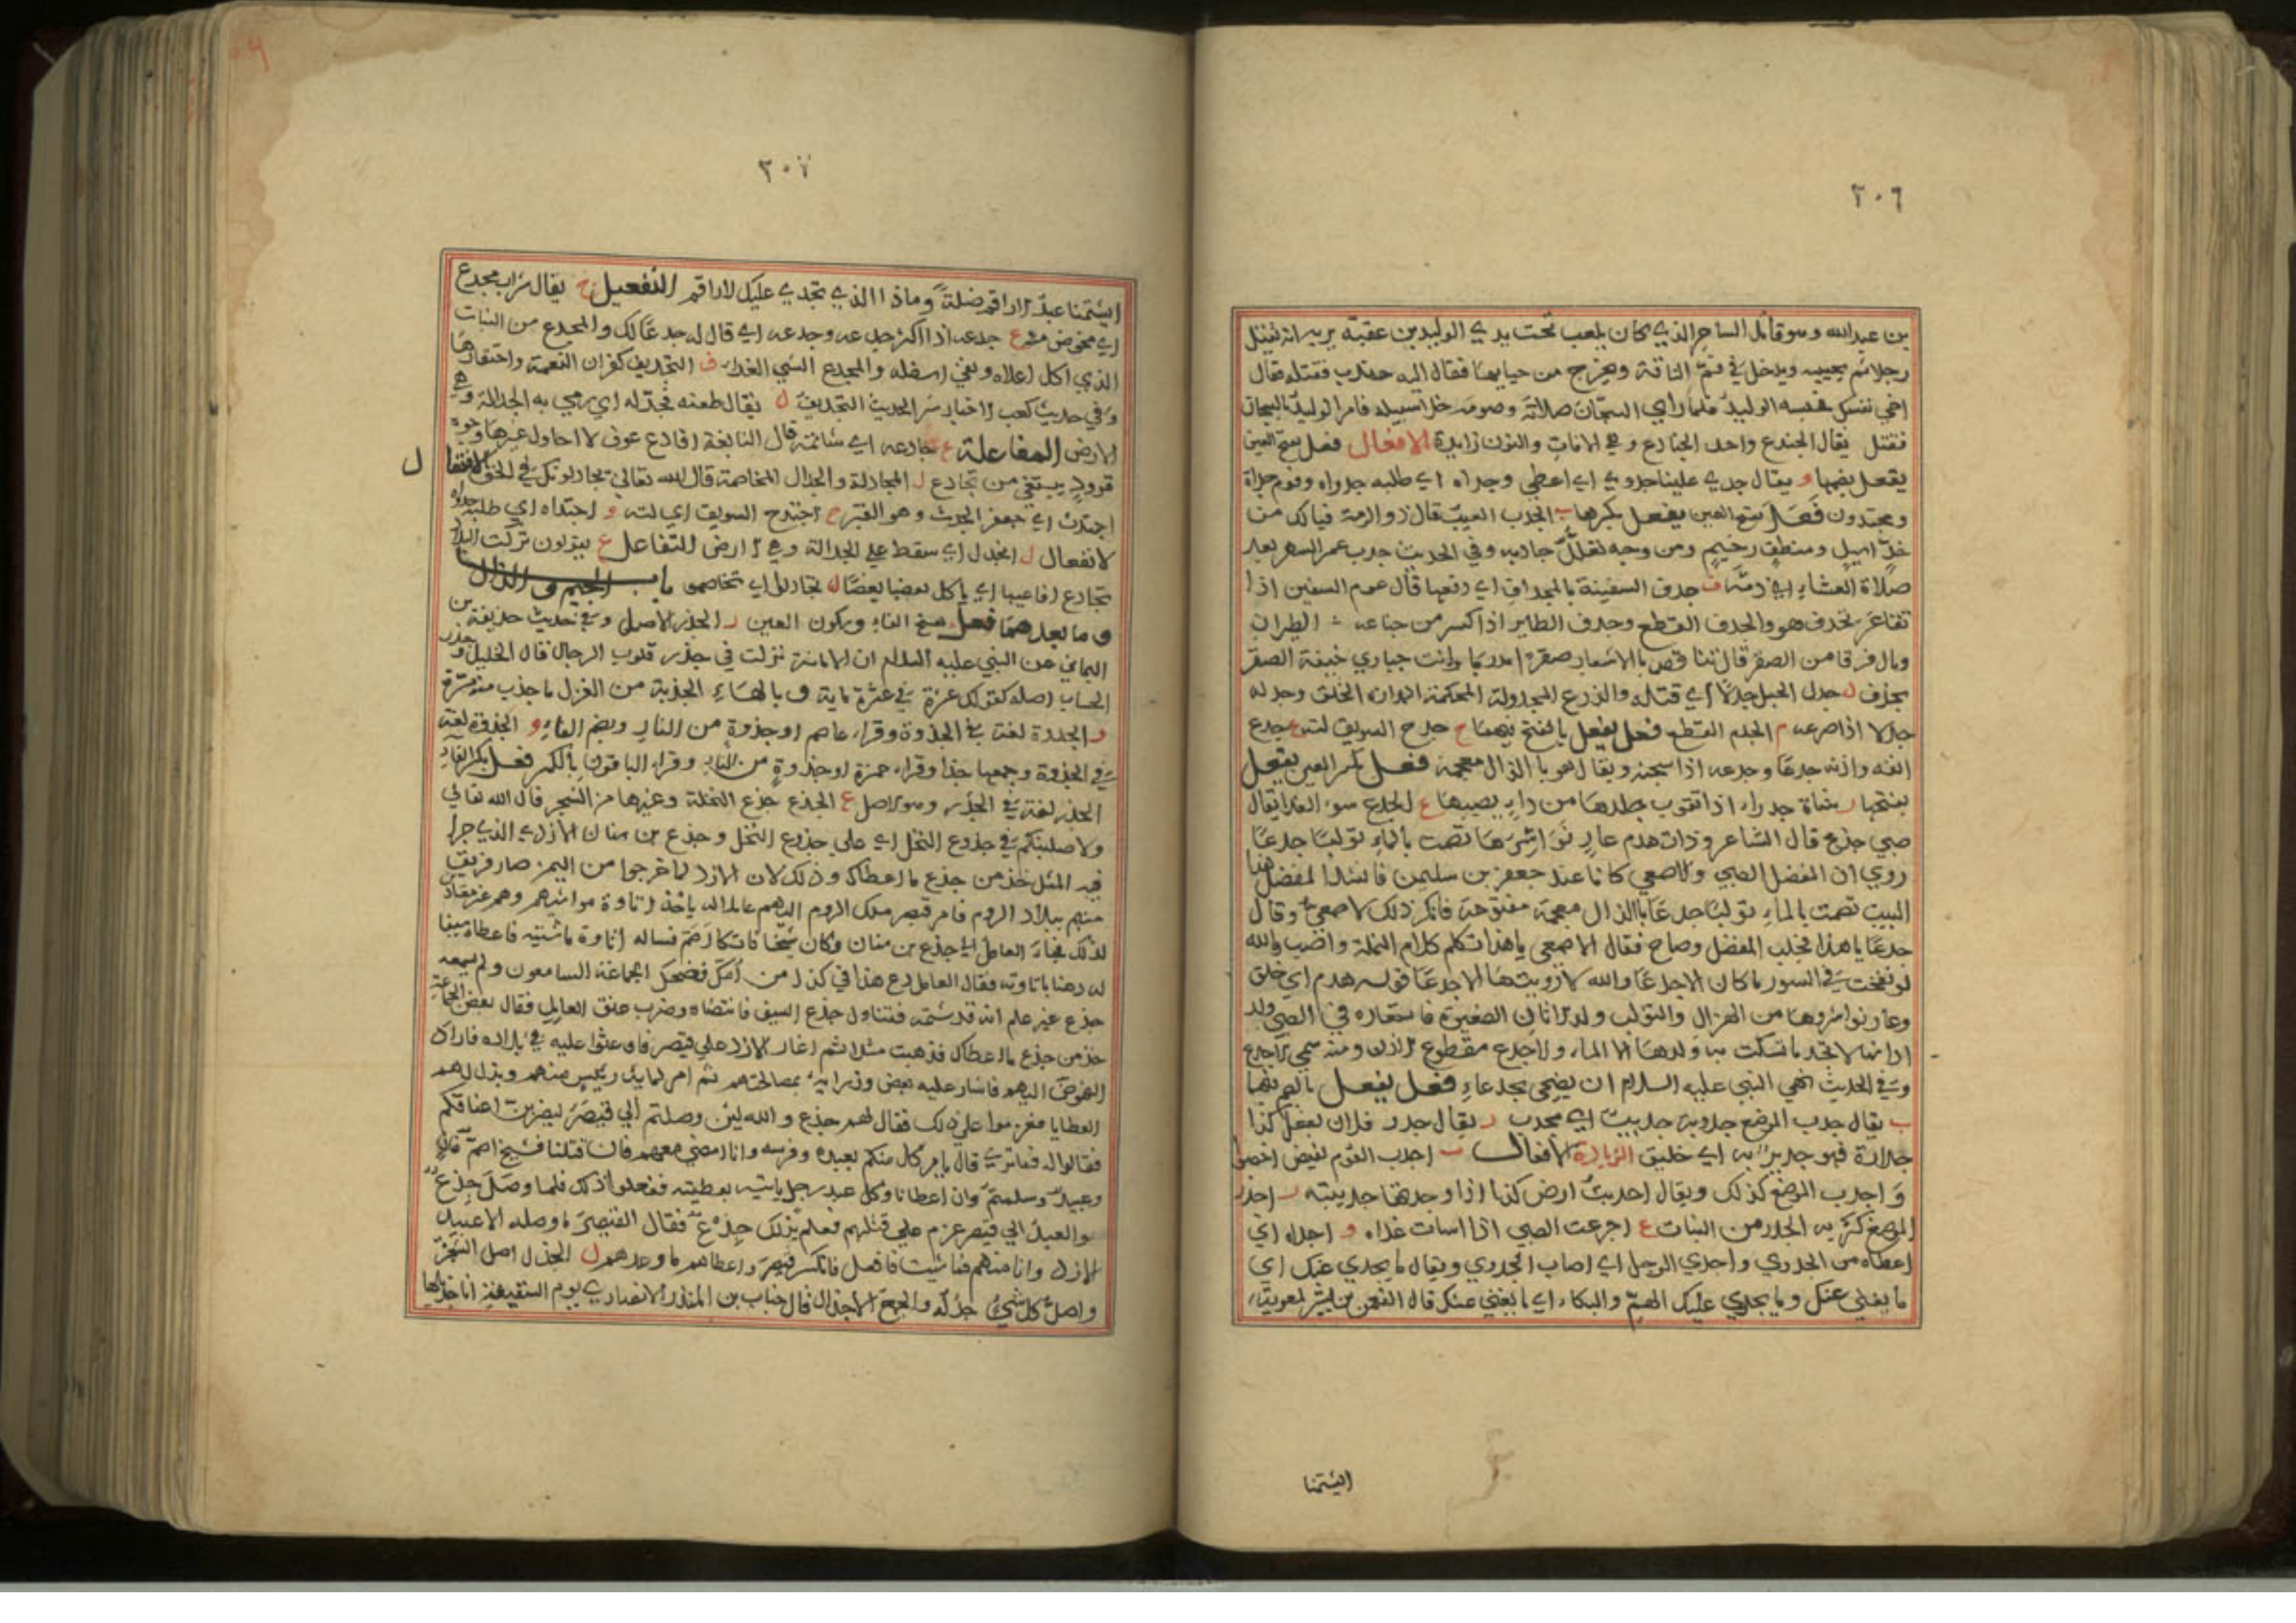 ٢٠٦
بن عبدالله وهو قاتل الساحر الذي كان يلعب تحت يدي الوليد بن عقبة يريه انه يقتل
رجلا ثم يحييه ويدخل في فم الناقة ويخرج من حيايها فقال اليه جندب فقتله فقال
احي نفسك فحبسه الوليد فلما راي السجان صلاته وصومه خلا سبيله فامر الوليد بالسجان
فقتل يقال الجندع واحد الجنادع وهي الافات والنون زايدة الافعال فعل بفتح العين
يفعل بضمها و يقال جدي علينا جدوي اي اعطي وجداه اي طلبه جدواه وقوم جداة
ومجتدون فعل بفتح العين يفعل بكسرها ب الجدب العيب قال ذو الرمة فيا لك من
خد اسيل ومنطق رخيم ومن وجه تعلل جادبه وفي الحديث جدب عمر السمر بعد
صلاة العشاء اي ذمه ف جدف السفينة بالمجداف اي دفعها قال عوم السفين اذا
تقاعز تجدف هو والجدف القطع وجدف الطاير اذا كسر من جناحه الطيران
ومال فرقا من الصقر قال تناقص بالاشعار صقرا مدربا وانت حباري خيفة الصقر
يجدف ل جدل الحبل جدلا اي فتله والدرع المجدولة المحكمة الخلق وجدله
جدلا اذا صرعه م الجدم القطع فعل يفعل بالفتح فيهما ح جدح السويق لته ع جدع
انفه واذنه جدعا وجدعه اذا سجنه ويقال هو بالذال معجمة فعل بكسر العين يفعل
بفتحها ر شاة جدراء اذا تقوب جلدها من داء يصيبها ع الجدع سوء الغذا يقال
صبي جدع قال الشاعر وذات هدم عار نواشرها تصمت بالماء تولبا جدعا
روي ان المفضل الضبي والاصمعي كانا عند جعفر بن سليمن فانشد المفضل هذا
البيت تصمت بالماء تولبا جدعا بالذال معجمة مفتوحة فانكر ذلك الاصمعي وقال
جدعا يا هذا فجلب المفضل وصاح فقال الاصمعي يا هذا تكلم كلام النملة واصب والله
لو نفخت في السور ما كان الا جدعا والله لا رويتها الا جدعا قوله هدم اي خلق
وعار نواشرها من الهزال والتولب ولد الاتان الصغيرة فاستعاره في الصبي ولد
اذا انها لا تجد ما تسكت به ولدها الا الماء والاجدع مقطوع الاذن ومنه سمي الاجدع
وفي الحديث نهي النبي عليه السلام ان يضحي بجدعاء فعل يفعل بالضم فيهما
ب يقال جدب الموضع جدوبة جديب اي مجدب ر يقال جدر فلان يفعل كذا
جدارة فهو جدير به اي خليق الزيادة الافعال ب اجدب القوم نقيض اخصبوا
و اجدب الموضع كذلك ويقال اجدبت ارض كذا اذا وجدتها جديبة ر اجدر
الموضع كثر به الجدر من النبات ع اجدعت الصبي اذا اسات غذاه و اجداه اي
اعطاه من الجدوي واجدي الرجل اي اصاب الجدوي ويقال ما يجدي عنك اي
ما يغني عنك وما يجدي عليك الهم والبكاء اي ما يغني عنك قال النعمن بن بشر لمعوية
ايشتمنا
٢٠٧
ايشتمنا عبد الاراقم ضلة وماذا الذي تجدي عليك الاراقم التفعيل ح يقال شراب مجدح
اي مخوض ع جدعه اذا اكثر جدعه وجدعه اي قال له جدعا لك والمجدع من النبات
الذي اكل اعلاه وبقي اسفله والمجدع السيي الغذاء ف التجديف كفران النعمة واحتقارها
وفي حديث كعب الاحبار شر الحديث التجديف ل يقال طعنه فجدله اي رمي به الجدالة وهي
الارض المفاعلة ع جادعه اي شاتمه قال النابغة اقارع عوف لا احاول غيرها وجوه
قرود يبتغي من تجادع ل المجادلة والجدال المخاصمة قال الله تعالي تجادلونك في الحق الافتعال
اجتدث اي حفر الجدث وهو القبر ح اجتدح السويق اي لته و اجتداه اي طلب جدواه
الانفعال ل انجدل اي سقط علي الجدالة وهي الارض التفاعل ع يقولون تركت البلاد
تجادع افاعيها اي ياكل بعضها بعضا ل تجادلوا اي تخاصموا باب الجيم والذال
وما بعدهما فعل بفتح الفاء وسكون العين ر الجذر الاصل وفي حديث حذيفة بن
اليماني عن النبي عليه السلام ان الامانة نزلت في جذر قلوب الرجال قال الخليل وجذر
الحساب اصله كقولك عشرة في عشرة ماية و بالهاء الجذبة من الغزل ما جذب منه مرة
و الجذوة لغة في الجذوة وقراء عاصم او جذوة من النار وبضم الفاء و الجذوة لغة
في الجذوة وجمعها جذا وقراء حمزة او جذوة من النار وقراء الباقون بالكسر فعل بكسر الفاء
الجذر لغة في الجذر وهو الاصل ع الجذع جذع النخلة وغيرها من الشجر قال الله تعالي
ولاصلبنكم في جذوع النخل اي علي جذوع النخل وجذع بن سنان الازدي الذي جرا
فيه المثل خذ من جذع ما اعطاك وذلك لان الازد لما خرجوا من اليمن صار فريق
منهم ببلاد الروم فامر قيصر ملك الروم اليهم عاملا له ياخذ اتاوة مواشيهم وهم غير معتادين
لذلك فجاء العامل الي جذع بن سنان وكان شيخا فاتكا اصم فساله اتاوة ماشيته فاعطاه سيفا
له رهنا باتاوته فقال العامل دع هذا في كذا من امك فضحك الجماعة السامعون ولم يسمعه
جذع غير علم انه قد شتمه فتناول جذع السيف فانتضاه وضرب عنق العامل فقال بعض الجماعة
خذ من جذع ما اعطاك فذهبت مثلا ثم اغار الازد علي قيصر فاوعثوا عليه في بلاده فاراد
النهوض اليهم فاشار عليه بعض وزرائه بمصالحتهم ثم امر لماية رييس منهم وبذل لهم
العطايا فعزموا علي ذلك فقال لهم جذع والله لين وصلتم الي قيصر ليضربن اعناقكم
فقالوا له فما تري قال يامر كل منكم بعبده وفرسه وانا امضي معهم فان قتلنا فشيخ اصم فان
وعبيد وسلمتم وان اعطانا وكل عبد رجل ياتيه بعطيته ففعلوا ذلك فلما وصل جذع
والعبيد الي قيصر عزم علي قتلهم فعلم بذلك جذع فقال القيصر ما وصله الا عبيد
الازد وانا منهم فما شيت فافعل فانكسر قيصر واعطاهم ما وعدهم ل الجذل اصل الشجر
واصل كل شيء جذله والجمع الاجذال قال حباب بن المنذر الانصاري يوم السقيفة انا جذيلها